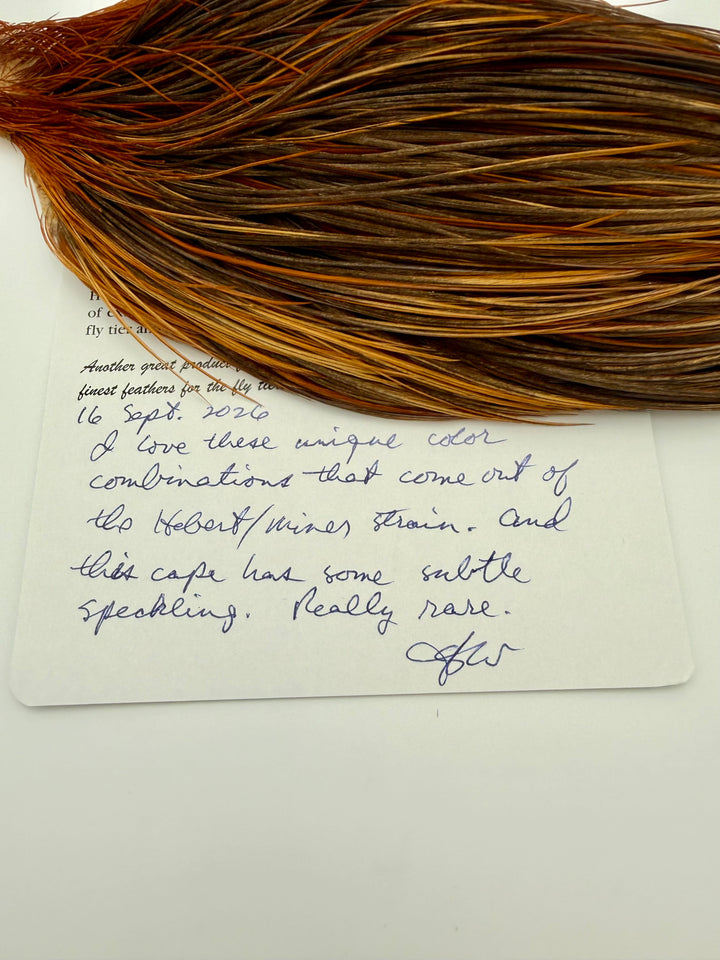 H
of ex
fly tier an
Another great product
finest feathers for the fly tie
16 Sept. 2026
I love these unique color
combinations that come out of
the Hebert/miner strain. And
this cape has some subtle
speckling. Really rare.